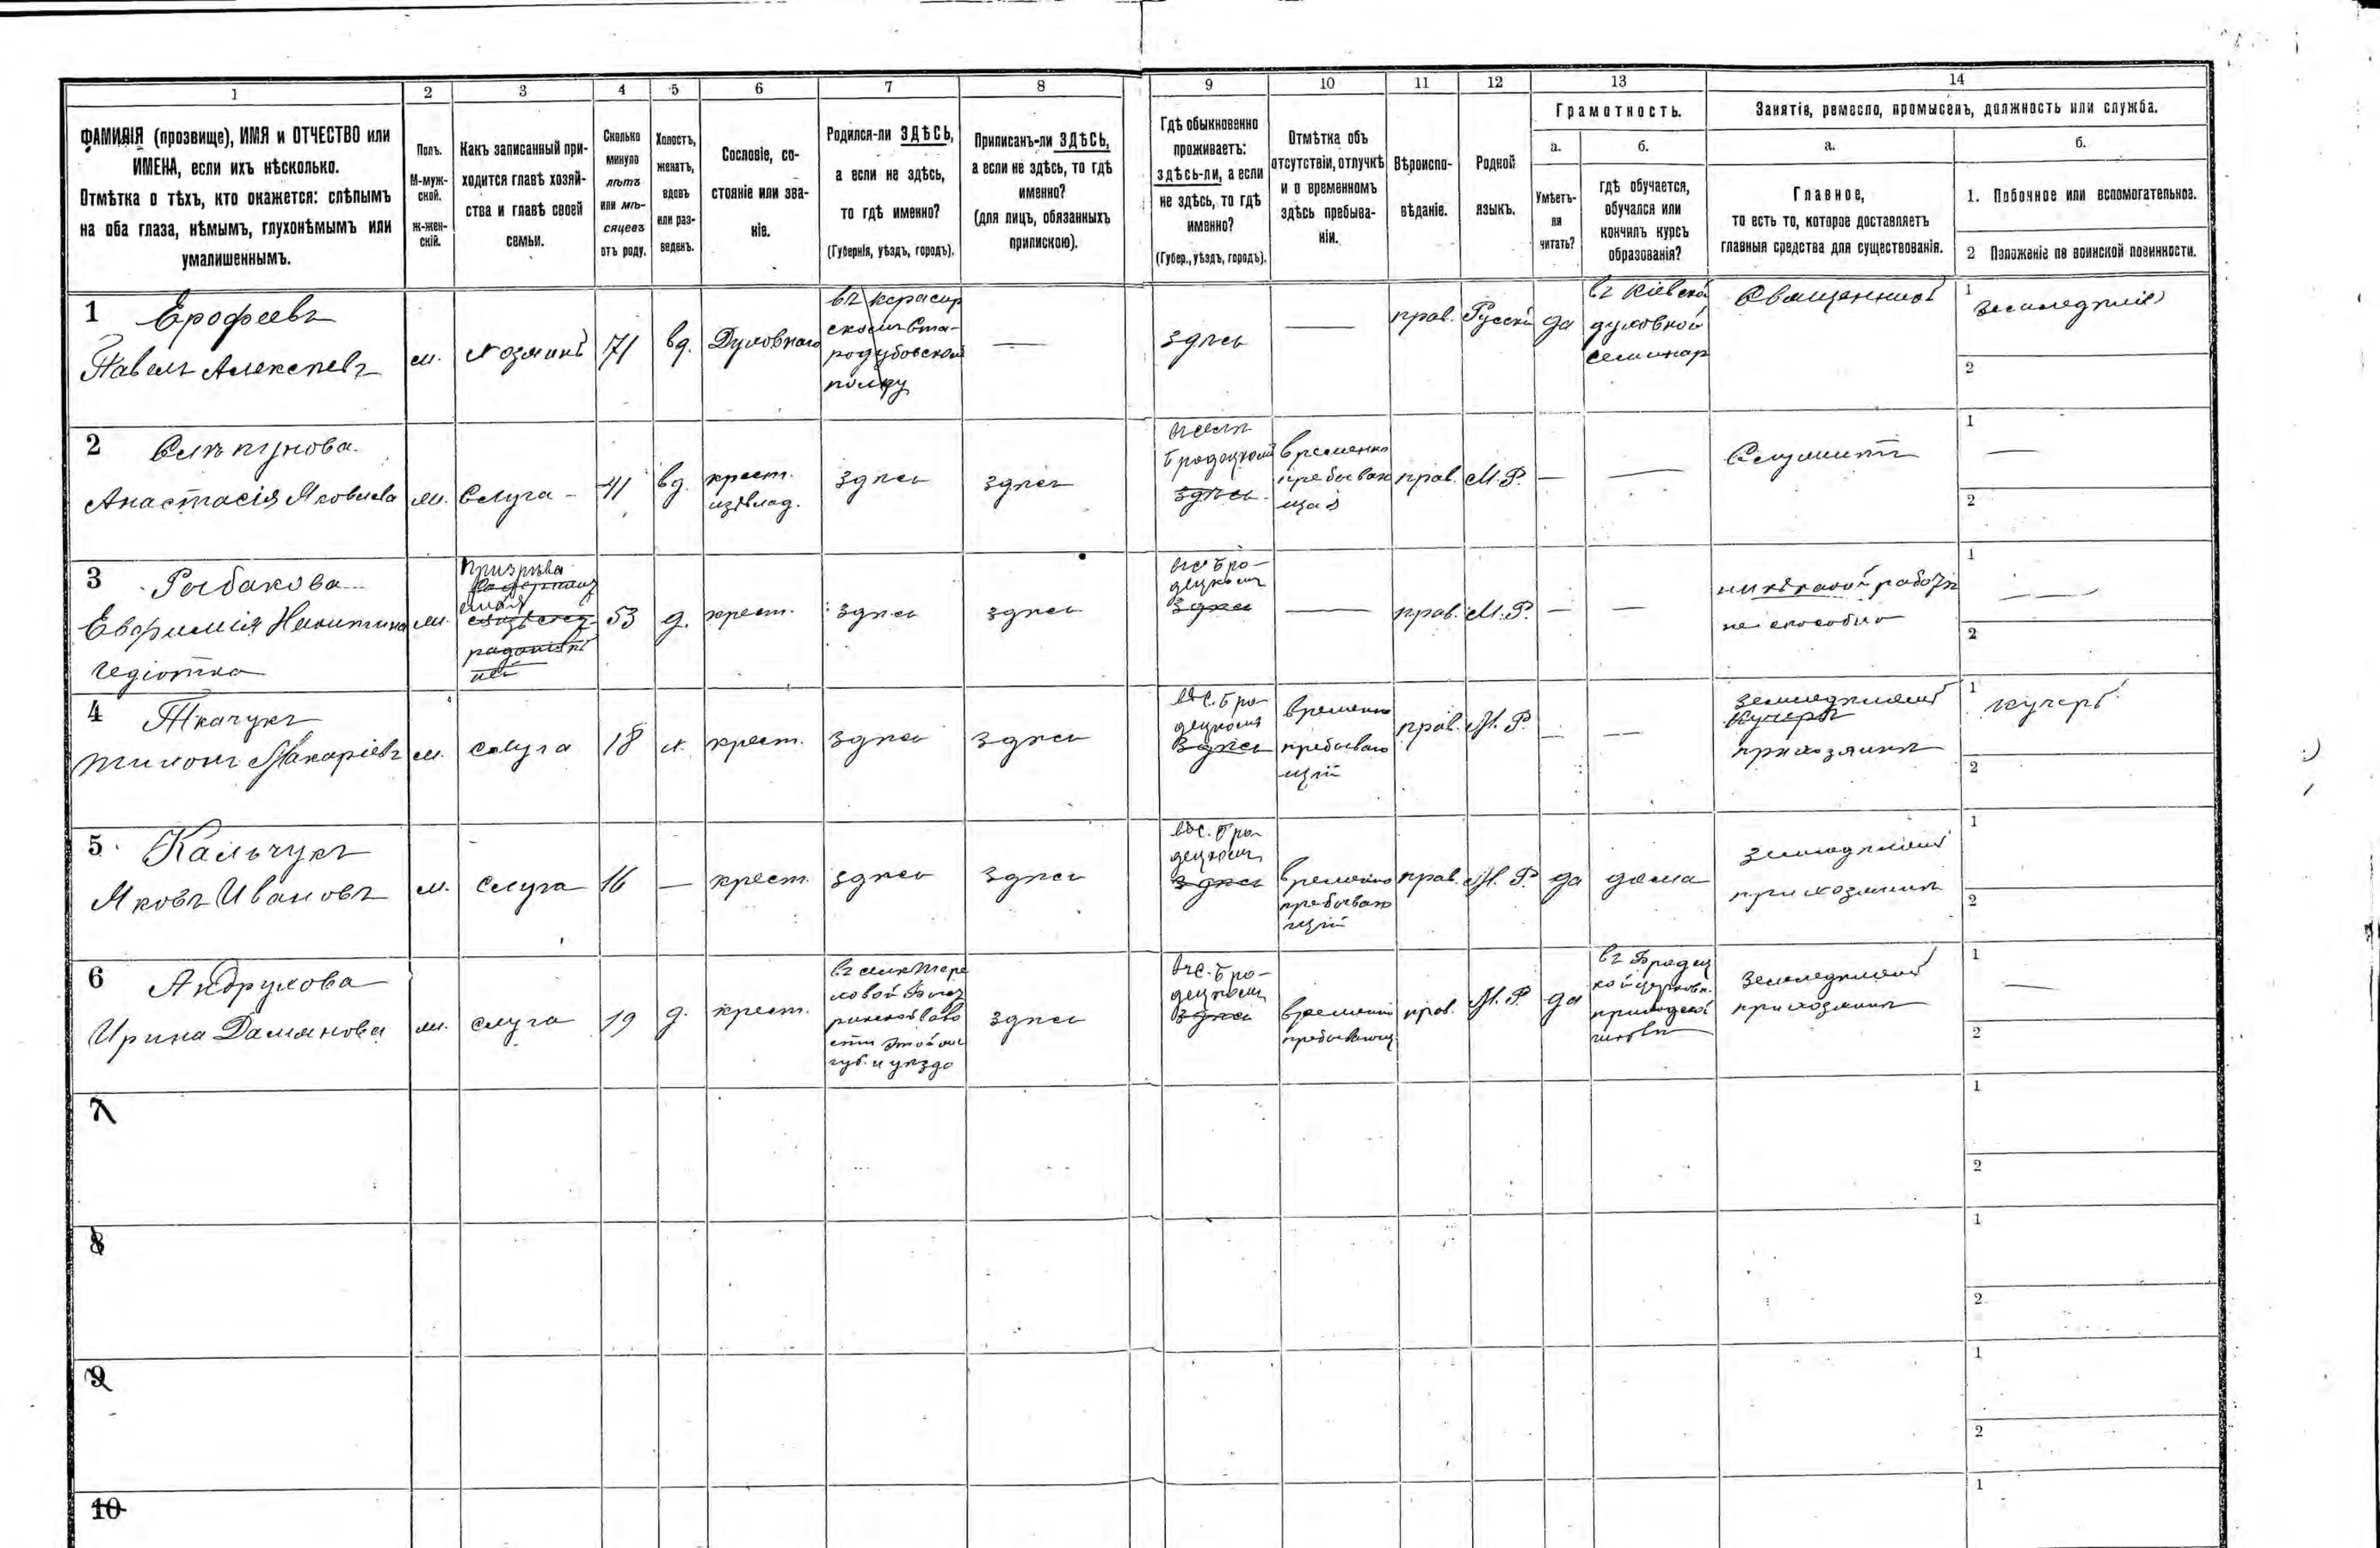 1 2 3 4 5 6 7 8 9 10 11 12 13 14
ФАМИЛІЯ (прозвище), ИМЯ и ОТЧЕСТВО или
ИМЕНА, если ихъ нѣсколько.
Отмѣтка о тѣхъ, кто окажется: слѣпымъ
на оба глаза, нѣмымъ, глухонѣмымъ или
умалишеннымъ.
Полъ.
М-муж-
ской.
ж-жен-
скій.
Какъ записанный при-
ходится главѣ хозяй-
ства и главѣ своей
семьи.
Сколько
минуло
лѣтъ
или мѣ-
сяцевъ
отъ роду.
Холостъ,
женатъ,
вдовъ
или раз-
веденъ.
Сословіе, со-
стояніе или зва-
ніе.
Родился-ли ЗДѢСЬ,
а если не здѣсь,
то гдѣ именно?
(Губернія, уѣздъ, городъ).
Приписанъ-ли ЗДѢСЬ,
а если не здѣсь, то гдѣ
именно?
(для лицъ, обязанныхъ
припискою).
Гдѣ обыкновенно
проживаетъ:
здѣсь-ли, а если
не здѣсь, то гдѣ
именно?
(Губер., уѣздъ, городъ).
Отмѣтка объ
отсутствіи, отлучкѣ
и о временномъ
здѣсь пребыва-
ніи.
Вѣроиспо-
вѣданіе.
Родной
языкъ.
Грамотность.
а.
Умѣетъ-
ли
читать?
б.
гдѣ обучается,
обучался или
кончилъ курсъ
образованія?
Занятіе, ремесло, промыселъ, должность или служба.
а.
Главное,
то есть то, которое доставляетъ
главныя средства для существованія.
б.
1. Побочное или вспомогательное.
2 Положеніе по воинской повинности.
1 Ерофеевъ
Павелъ Алексѣевъ
м.
хозяинъ
71
вд.
Духовнаго
въ
родубовском
полку
—
здѣсь
—
прав.
Русскій
да
въ Кіевской
духовной
семинар
Священникъ
1 земледѣліе
2
2 Слѣпунова
Анастасія Яковлева
ж.
Слуга -
41
вд.
крест.
изъ влад.
здѣсь
здѣсь
Бродецкомъ
здѣсь
временно
пребываю
щая
прав.
М. Р.
—
—
Служитъ
1 —
2
3 Рыбакова
Евфимія Никитина
идіотка
ж.
призрѣва
емая
53
д.
крест.
здѣсь
здѣсь
въ с. Бро-
децкомъ
здѣсь
—
прав.
М. Р.
—
—
никъ какой работѣ
не способно
1 —
2
4 Ткачукъ
Тихонъ Макаріевъ
м.
слуга
18
х.
крест.
здѣсь
здѣсь
въ с. Бро-
децкомъ
здѣсь
временно
пребываю
щій
прав.
М. Р.
—
—
земледѣліемъ
кучеръ
при хозяинѣ
1 кучеръ
2
5 Кальчукъ
Яковъ Ивановъ
м.
слуга
16
—
крест.
здѣсь
здѣсь
въ с. Бро-
децкомъ
здѣсь
временно
пребываю
щій
прав.
М. Р.
да
дома
земледѣліемъ
при хозяинѣ
1
2
6 Андрухова
Ирина Дамянова
ж.
слуга
19
д.
крест.
губ. и уѣзда
здѣсь
въ с. Бро-
децкомъ
здѣсь
временно
пребывающ
прав.
М. Р.
да
въ Бродец
кой церковн.
приходской
школѣ
земледѣліемъ
при хозяинѣ
1 —
2
7
1
2
8
1
2
9
1
2
10
1